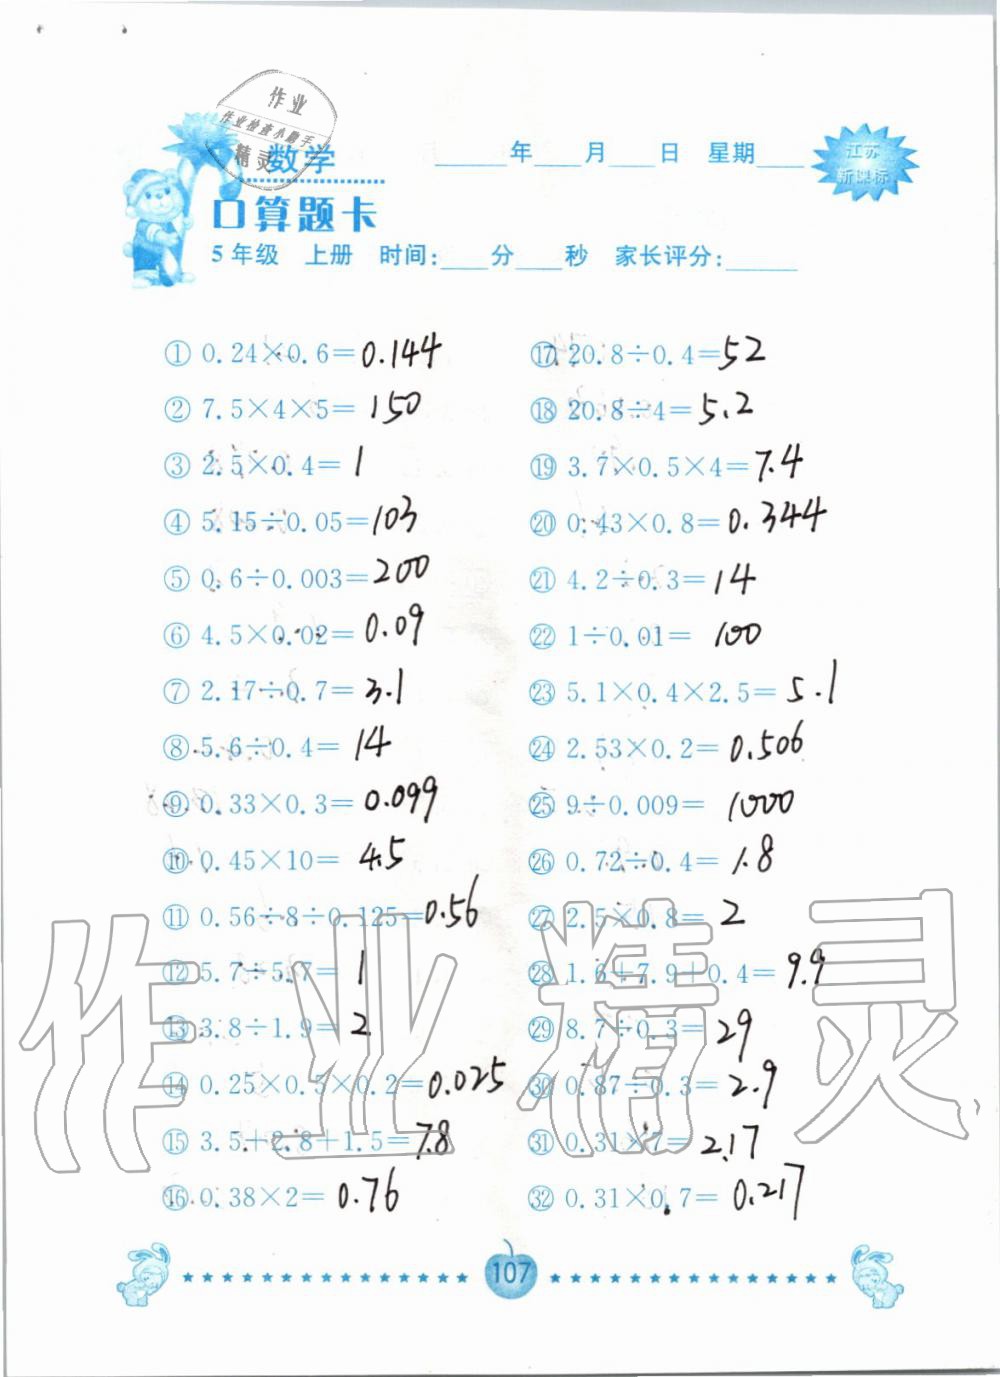 作业
作业检查小助手
精灵
数学
____年____月____日 星期____
江苏
新课标
口算题卡
5年级 上册 时间:____分____秒 家长评分:______
① 0.24×0.6=0.144
② 7.5×4×5=150
③ 2.5×0.4=1
④ 5.15÷0.05=103
⑤ 0.6÷0.003=200
⑥ 4.5×0.02=0.09
⑦ 2.17÷0.7=3.1
⑧ 5.6÷0.4=14
⑨ 0.33×0.3=0.099
⑩ 0.45×10=4.5
⑪ 0.56÷8÷0.125=0.56
⑫ 5.7÷5.7=1
⑬ 3.8÷1.9=2
⑭ 0.25×0.5×0.2=0.025
⑮ 3.5+2.8+1.5=7.8
⑯ 0.38×2=0.76
⑰ 20.8÷0.4=52
⑱ 20.8÷4=5.2
⑲ 3.7×0.5×4=7.4
⑳ 0.43×0.8=0.344
㉑ 4.2÷0.3=14
㉒ 1÷0.01=100
㉓ 5.1×0.4×2.5=5.1
㉔ 2.53×0.2=0.506
㉕ 9÷0.009=1000
㉖ 0.72÷0.4=1.8
㉗ 2.5×0.8=2
㉘ 1.6+7.9+0.4=9.9
㉙ 8.7÷0.3=29
㉚ 0.87÷0.3=2.9
㉛ 0.31×7=2.17
㉜ 0.31×0.7=0.217
作业精灵
107